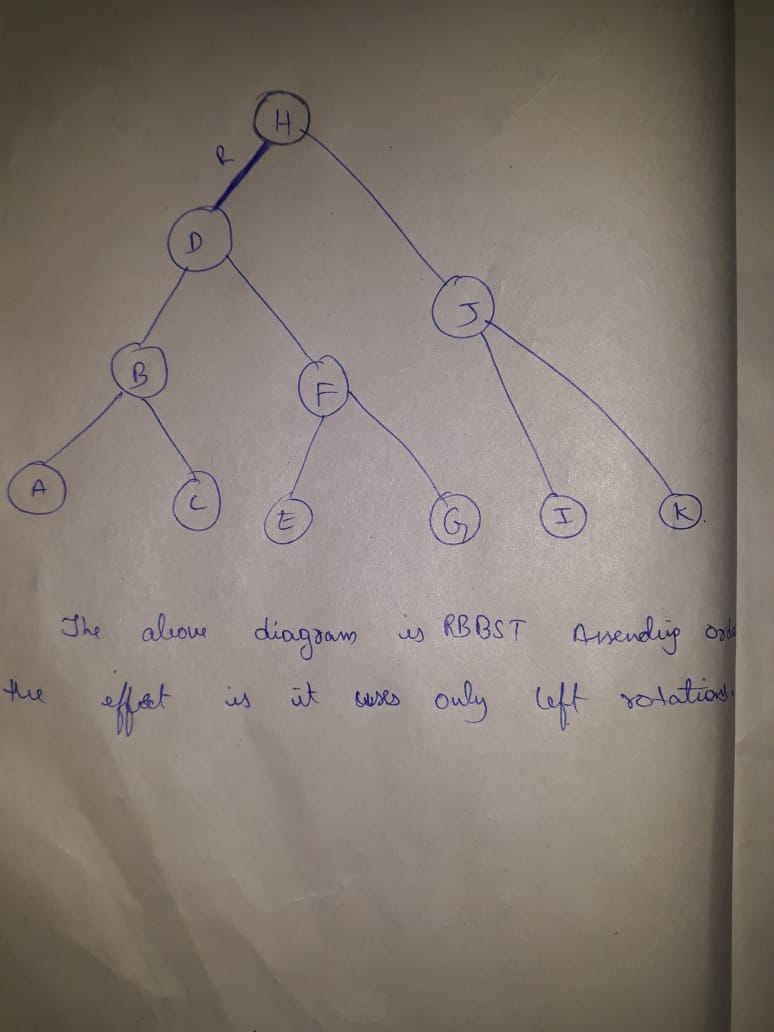 H
R
D
J
B
F
A
C
E
G
I
K
The above diagram is RBBST Assending
the effect is it uses only left rotations.